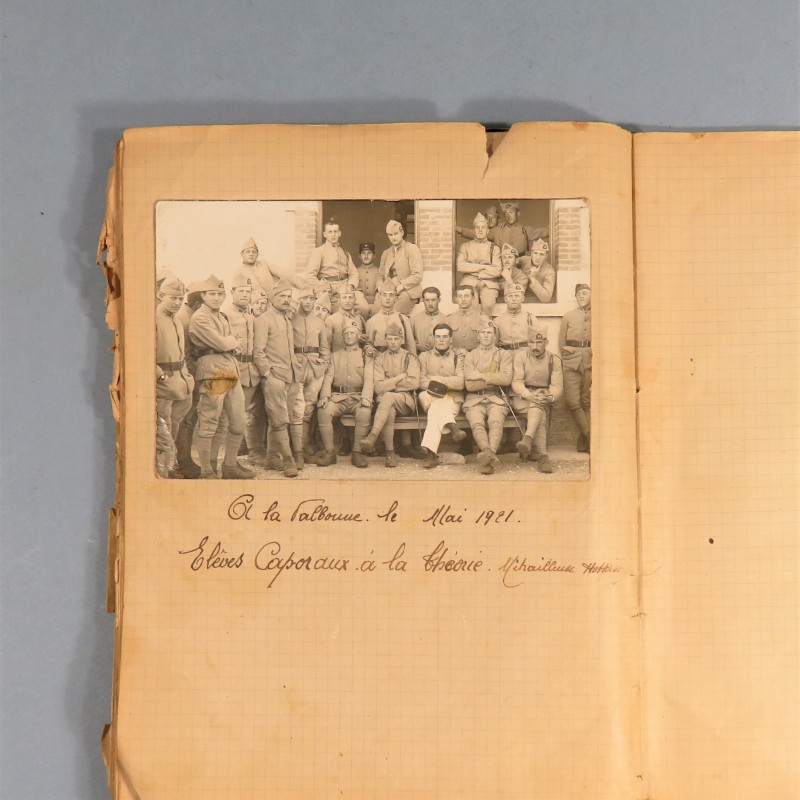 A la Valbonne. le Mai 1921.
Elèves Caporaux. à la Théorie. Mitrailleuse